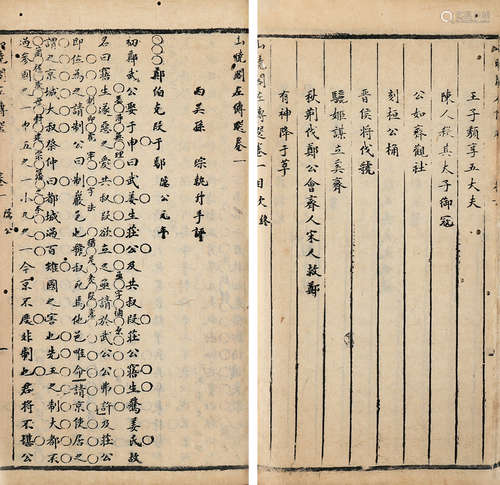 王子頽享五大夫
陳人殺其太子御寇
公如齊觀社
刻桓公桷
晉侯將伐虢
驪姬謀立奚齊
秋荊伐鄭公會齊人宋人救鄭
有神降于莘
山曉閣左傳選卷一目次終
山曉閣左傳選卷一
西吳孫 琮執升手評
鄭伯克段于鄢 隱公元年
初鄭武公娶于申曰武姜生莊公及共叔段莊公寤生驚姜氏故
名曰寤生遂惡之愛共叔段欲立之亟請於武公公弗許及莊公
即位為之請制公曰制巖邑也虢叔死焉他邑唯命請京使居之
謂之京城大叔祭仲曰都城過百雉國之害也先王之制大都不
過參國之一中五之一小九之一今京不度非制也君將不堪公
卷一 隱公